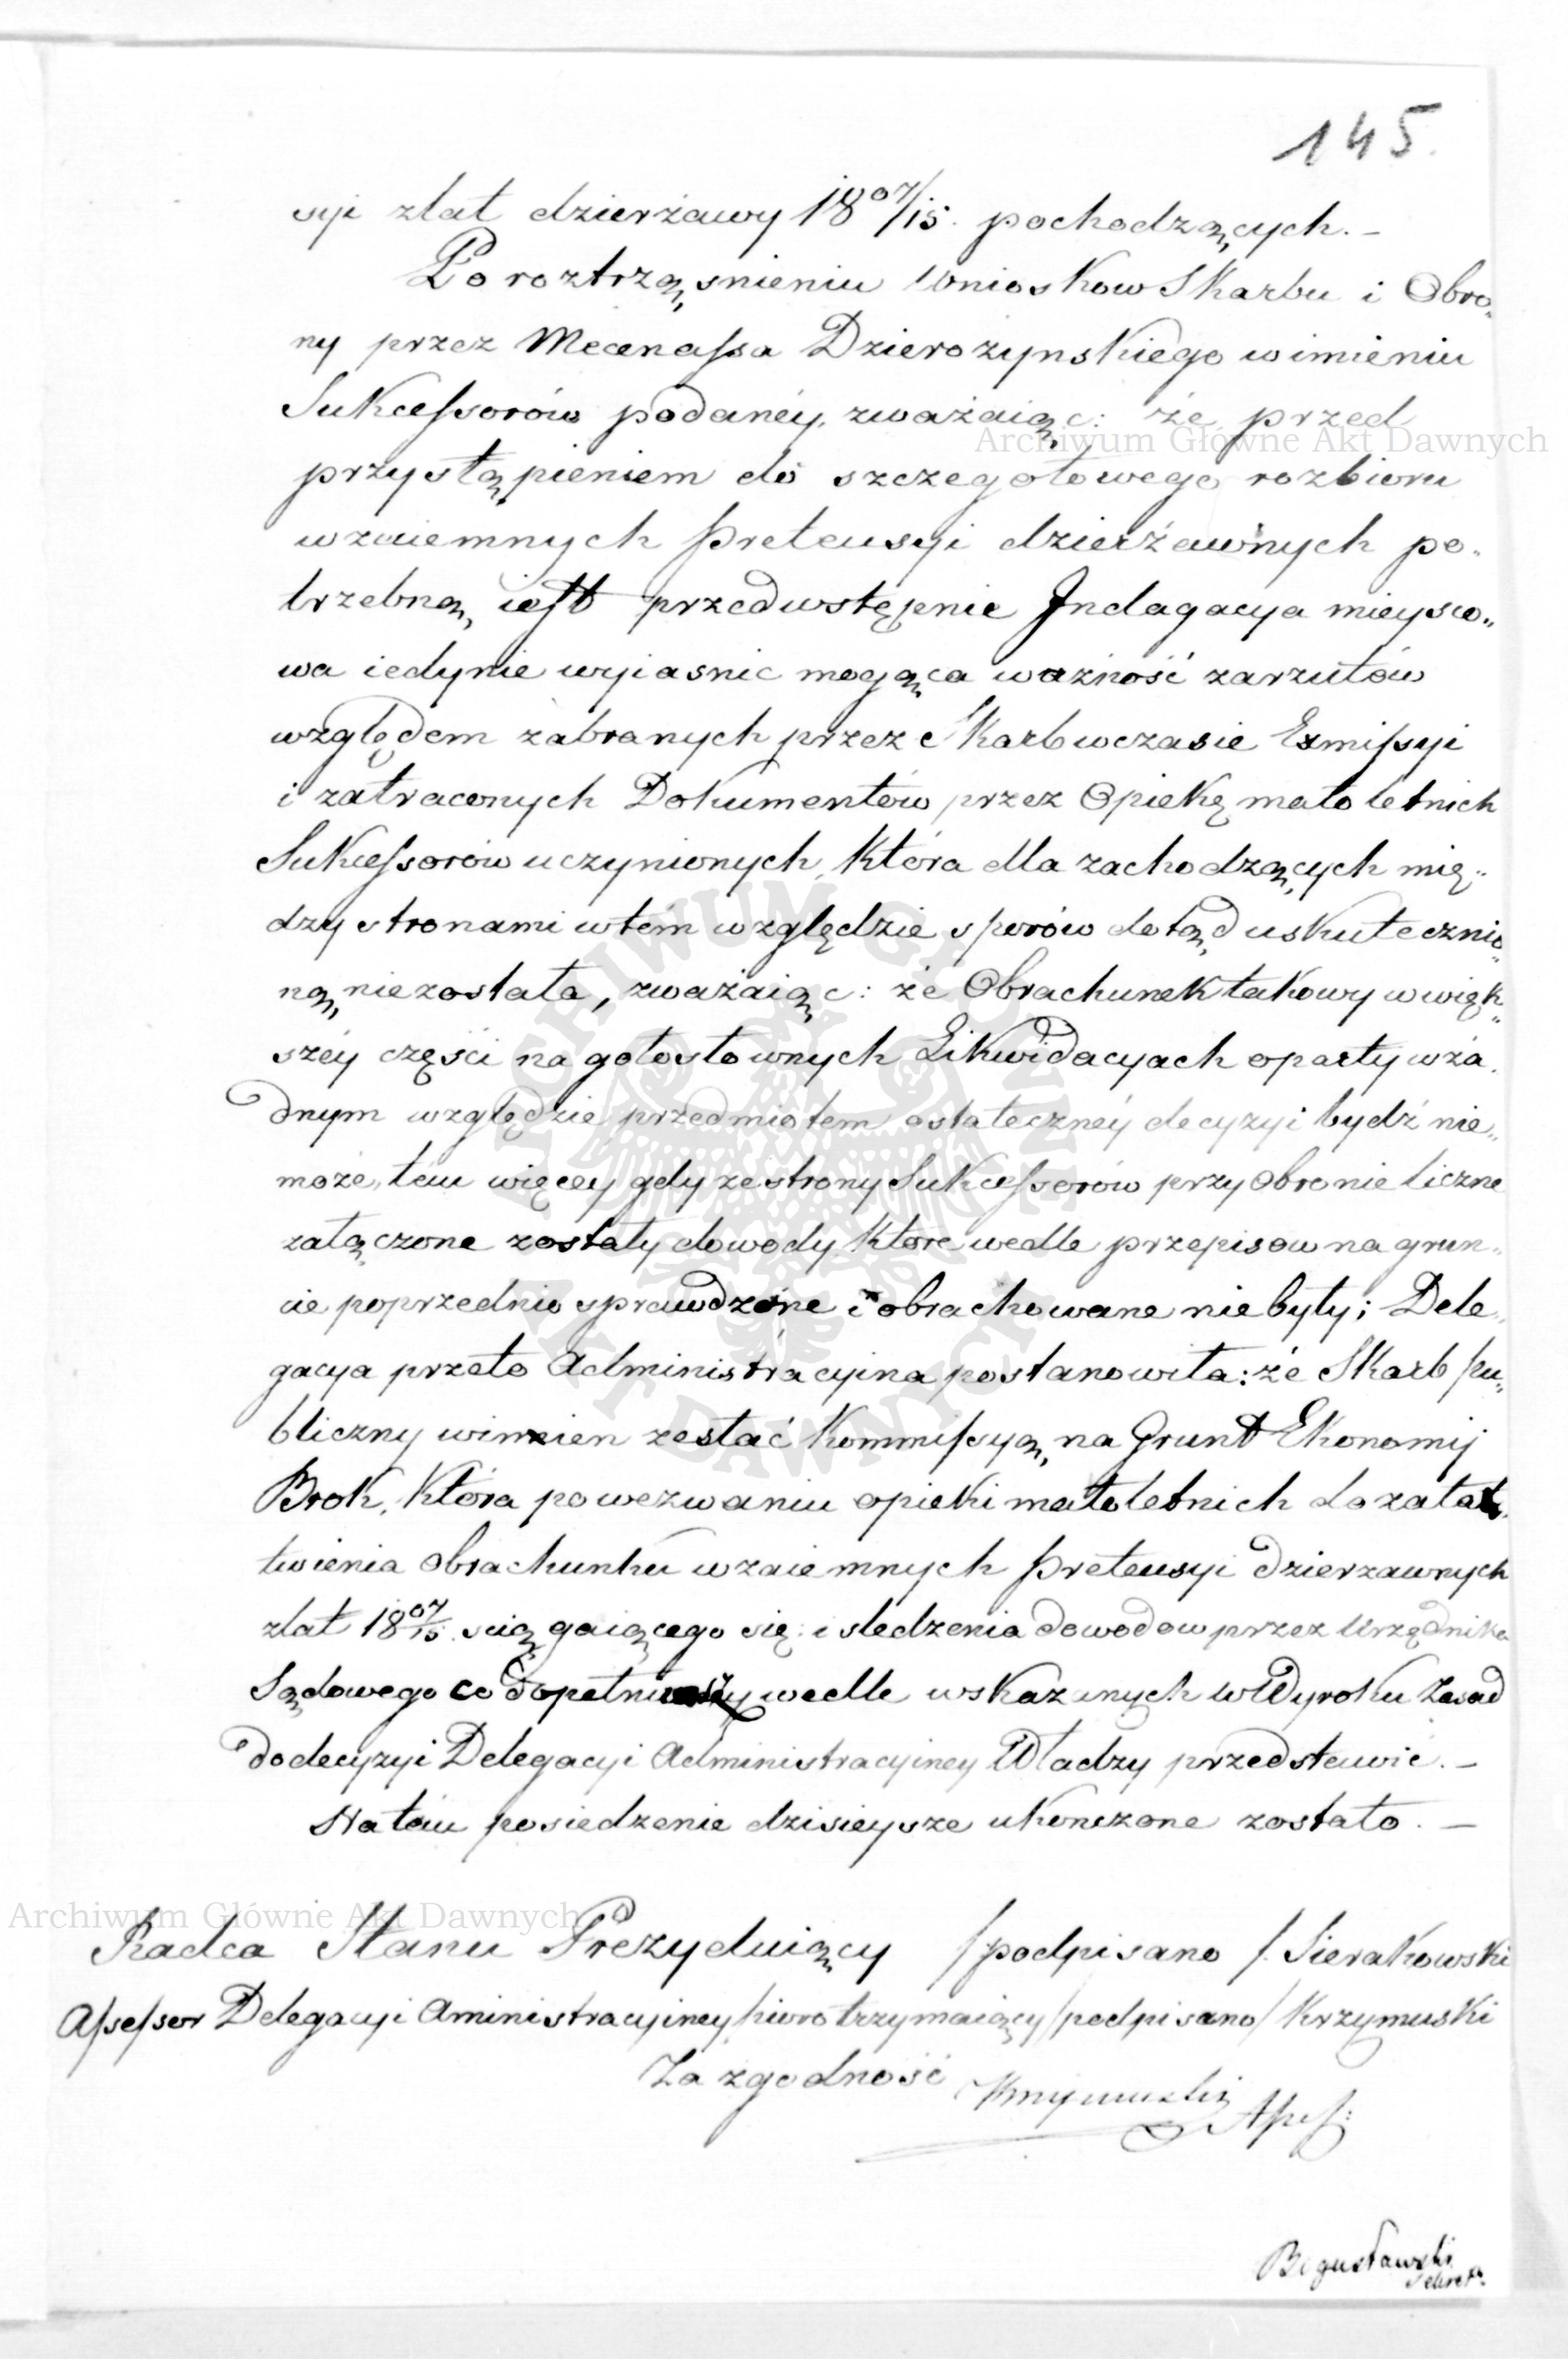 145.
syi zlat dzierżawy 18 07/15. pochodzących. –
Po roztrząśnieniu Wnioskow Skarbu i Obro„
ny przez Mecenaſsa Dzierożynskiego w imieniu
Sukceſsorów podanéy, zważaiąc: że przed
Archiwum Główne Akt Dawnych
przystąpieniem do szczegołowego rozbioru
wzaiemnych pretensyi dzierżawnych po„
trzebną ieſt przedwstępnie Indagacya mieysco„
wa iedynie wyiasnic mogąca ważność zarzutów
względem zabranych przez Skarb w czasie Exmiſsyi
i zatraconych Dokumentów przez Opiekę małoletnich
Sukceſsorów uczynionych, która dla zachodzących mię„
dzy stronami w tém względzie sporów dotąd uskutecznio„
ną niezostała, zważaiąc: że Obrachunek takowy w więk„
széy części na gołosłownych Likwidacyach oparty w ża„
dnym względzie przedmiotem ostatecznéy decyzyi bydź nie„
może, tém więcey gdy ze strony Sukceſsorów przy obronie liczne
załączone zostały dowody które wedle przepisow na grun„
cie poprzednio sprawdzone i obrachowane nie były; Dele„
gacya przeto Administracyina postanowiła: że Skarb pu„
bliczny winien zesłać Kommiſsyą na Grunt Ekonomij
Brok, która po wezwaniu opieki małoletnich do załat„
twienia Obrachunku wzaiemnych pretensyi dzierzawnych
zlat 18 07/15. sciągaiącego się i sledzenia dowodow przez Urzędnika
Sądowego co dopełniwszy wedle wskazanych w Wyroku Zasad
do decyzyi Delegacyi Administracyiney Władzy przedstawić. –
Na tém posiedzenie dzisieysze ukonczone zostało. –
Archiwum Główne Akt Dawnych
Radca Stanu Prezyduiący /podpisano/ Sierakowski
Aſseſsor Delegacyi Aministracyiney pioro trzymaiący /podpisano/ Krzymuski
Za zgodność Krzymuski Aſseſ:
Bogusławski
Sekret.
ARCHIWUM GŁÓWNE
AKT DAWNYCH